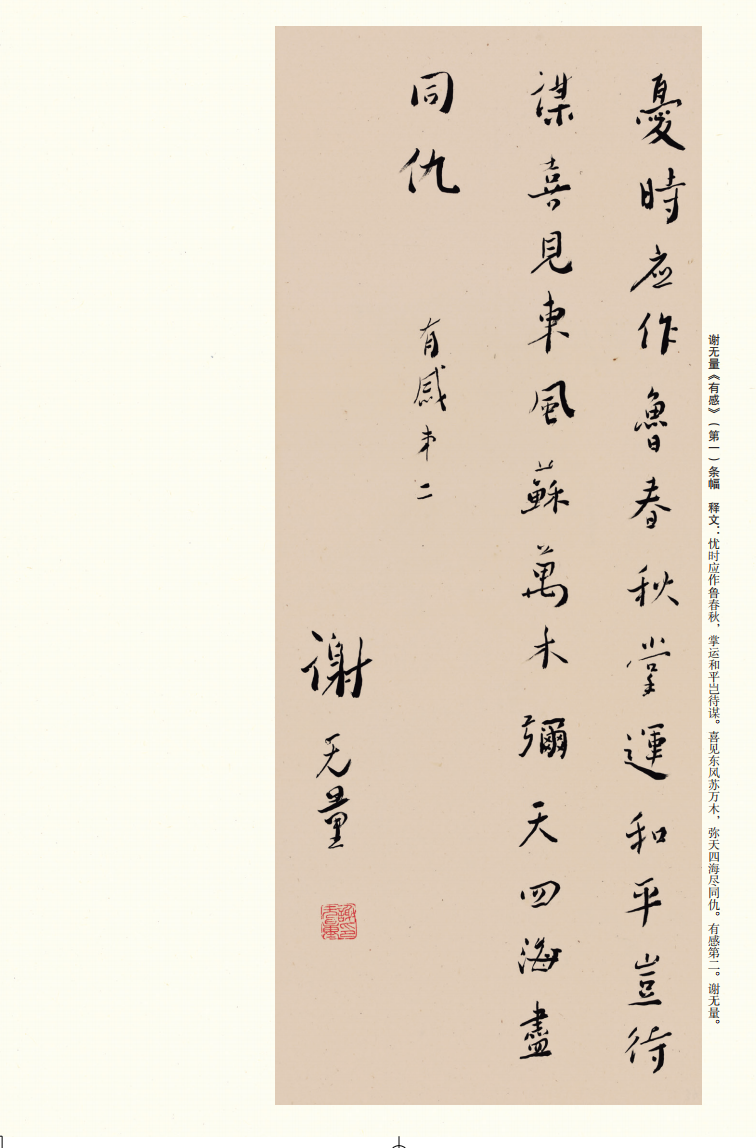 谢无量《有感》（第一）条幅　释文：忧时应作鲁春秋，掌运和平岂待谋。喜见东风苏万木，弥天四海尽同仇。有感第二。谢无量。
憂時应作魯春秋掌運和平豈待
謀喜見東風蘇萬木彌天四海盡
同仇
有感弟二
謝无量